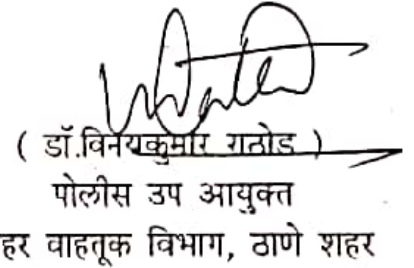 ( डॉ.विनयकुमार राठोड )
पोलीस उप आयुक्त
हर वाहतूक विभाग, ठाणे शहर